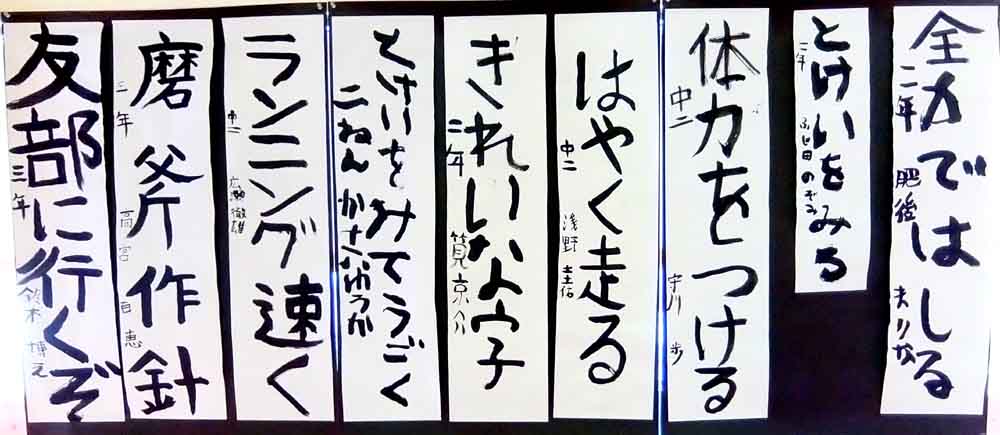 全力ではしる
二年 肥後 まりな
とけいをみる
二年 ふじ田のぞみ
体力をつける
中二 宇川 歩
はやく走る
中二 浅野 圭佑
きれいな字
二年 筧 京介
とけいをみてうごく
二ねん かさい ゆうか
ランニング速く
中二 広瀬 徹雄
磨斧作針
三年 高宮 百恵
友部に行くぞ
三年 鈴木 博元